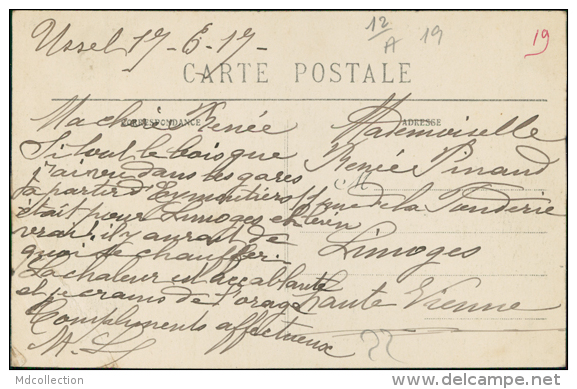 Ussel 17-6-17-
12
A 19
19
CARTE POSTALE
CORRESPONDANCE
ADRESSE
Ma chère Renée
Si tout le bois que
j'ai vu dans les gares
à partir d'Eymoutiers
était pour Limoges
vrai. il y aurait de
quoi se chauffer.
La chaleur est accablante
et je crains de l'orage
Compliments affectueux
M. L
Mademoiselle
Renée Pinaud
rue de la Fonderie
Limoges
Haute Vienne
MdCollection
www.delcampe.net